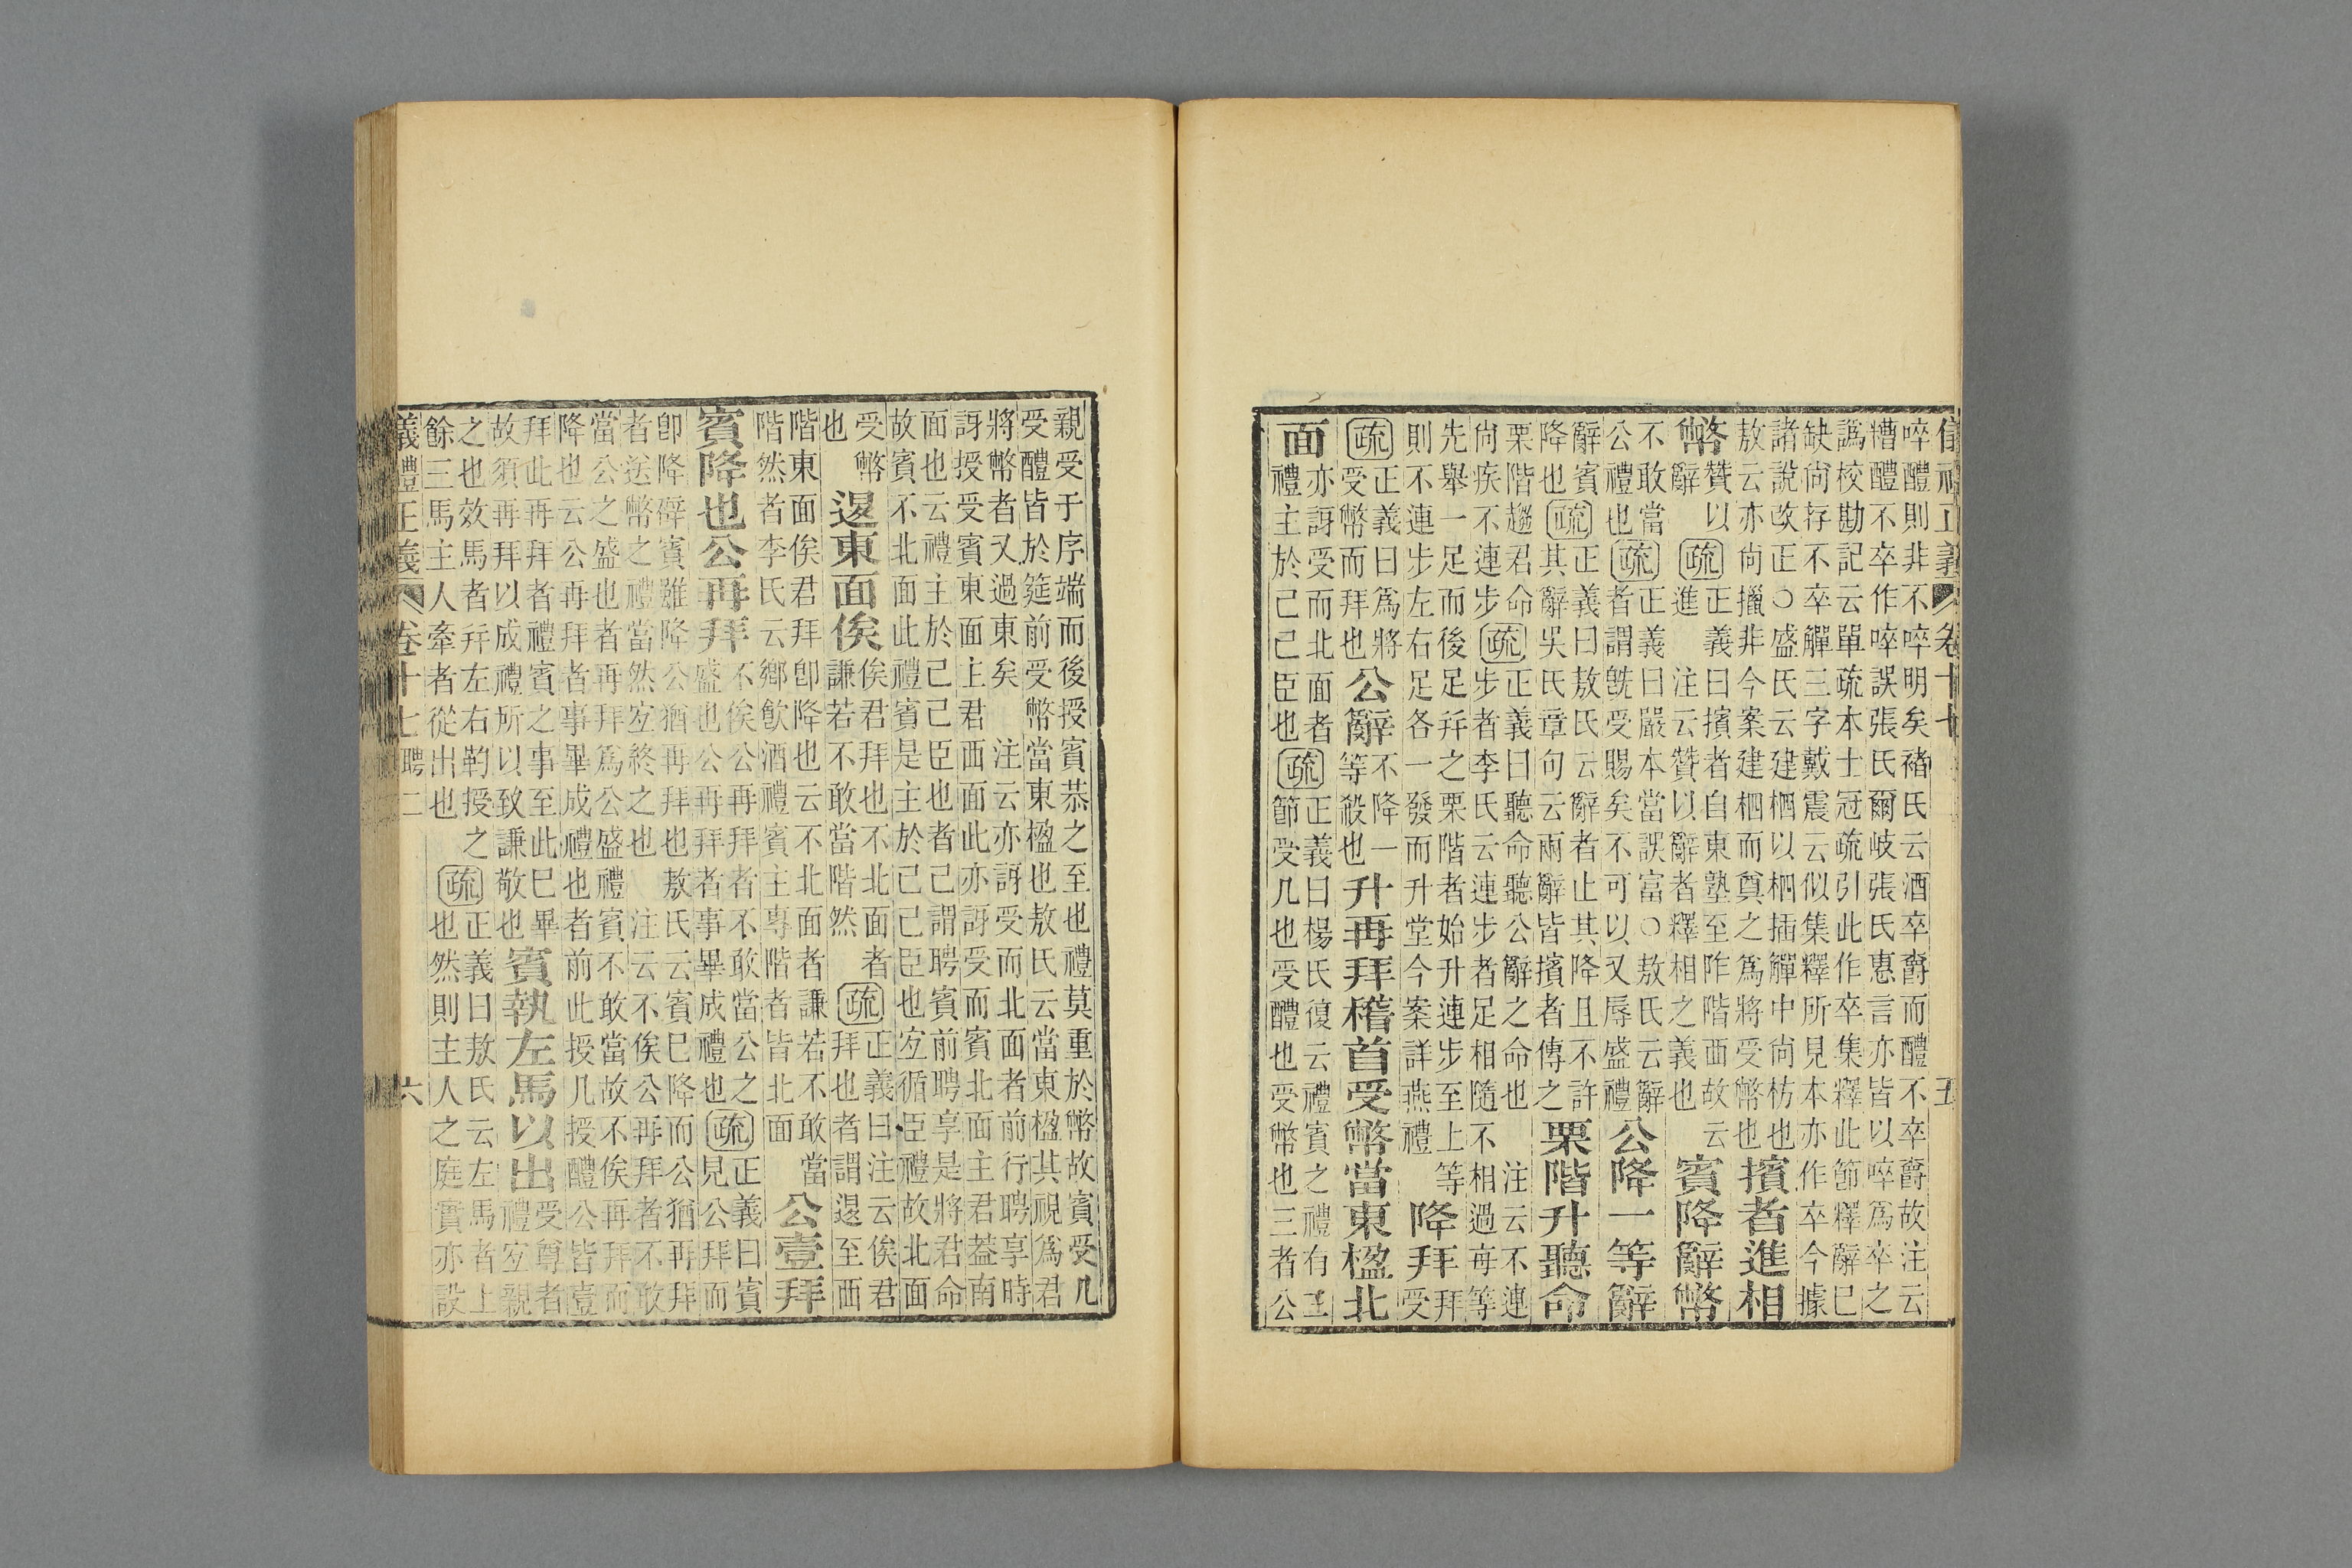 儀禮正義 卷十七 五
啐醴則非不啐明矣褚氏云酒卒爵而醴不卒爵故注云
糟醴不卒作啐誤張氏爾岐張氏惠言亦皆以啐爲卒之
譌校勘記云單疏本士冠疏引此作卒集釋此節釋辭巳
缺尚存不卒觶三字戴震云似集釋所見本亦作卒今據
諸說改正○盛氏云建柶以柶插觶中尚枋也
敖云亦尚擸非今案建柶而奠之爲將受幣也
擯者進相
幣
贊以
辭
疏
正義曰擯者自東塾至阼階西故云
進 注云贊以辭者釋相之義也
賓降辭幣
不敢當
公禮也
疏
正義曰嚴本當誤富○敖氏云辭
者謂旣受賜矣不可以又辱盛禮
公降一等辭
辭賓
降也
疏
正義曰敖氏云辭者止其降且不許
其辭吳氏章句云兩辭皆擯者傳之
栗階升聽命
栗階趨君命
尚疾不連步
疏
正義曰聽命聽公辭之命也 注云不連
步者李氏云連步者足相隨不相過每等
先舉一足而後足幷之栗階者始升連步至上等
則不連步左右足各一發而升堂今案詳燕禮
降拜
拜
受
疏
正義曰爲將
受幣而拜也
公辭
不降一
等殺也
升再拜稽首受幣當東楹北
面
亦訝受而北面者
禮主於己己臣也
疏
正義曰楊氏復云禮賓之禮有三
節受几也受醴也受幣也三者公
親受于序端而後授賓恭之至也禮莫重於幣故賓受几
受醴皆於筵前受幣當東楹也敖氏云當東楹其視爲君
將幣者又過東矣 注云亦訝受而北面者前行聘享時
訝授受賓東面主君西面此亦訝受而賓北面主君葢南
面也云禮主於己己臣也者己謂聘賓前聘享是將君命
故賓不北面此禮賓是主於己己臣也宐循臣禮故北面
受幣
也
退東面俟
俟君拜也不北面者
謙若不敢當階然
疏
正義曰注云俟君
拜也者謂退至西
階東面俟君拜卽降也云不北面者謙若不敢當
階然者李氏云鄉飮酒禮賓主專階者皆北面
公壹拜
賓降也公再拜
不俟公再拜者不敢當公之
盛也公再拜者事畢成禮也
疏
正義曰賓
見公拜而
卽降辟賓雖降公猶再拜也敖氏云賓巳降而公猶再拜
者送幣之禮當然宐終之也 注云不俟公再拜者不敢
當公之盛也者再拜爲公盛禮賓不敢當故不俟再拜而
降也云公再拜者事畢成禮也者前此授几授醴公皆壹
拜此再拜者禮賓之事至此巳畢
故須再拜以成禮所以致謙敬也
賓執左馬以出
受尊者
禮宐親
之也效馬者幷左右靮授之
餘三馬主人牽者從出也
疏
正義曰敖氏云左馬者上
也然則主人之庭實亦設
義禮正義 卷十七 聘二 六